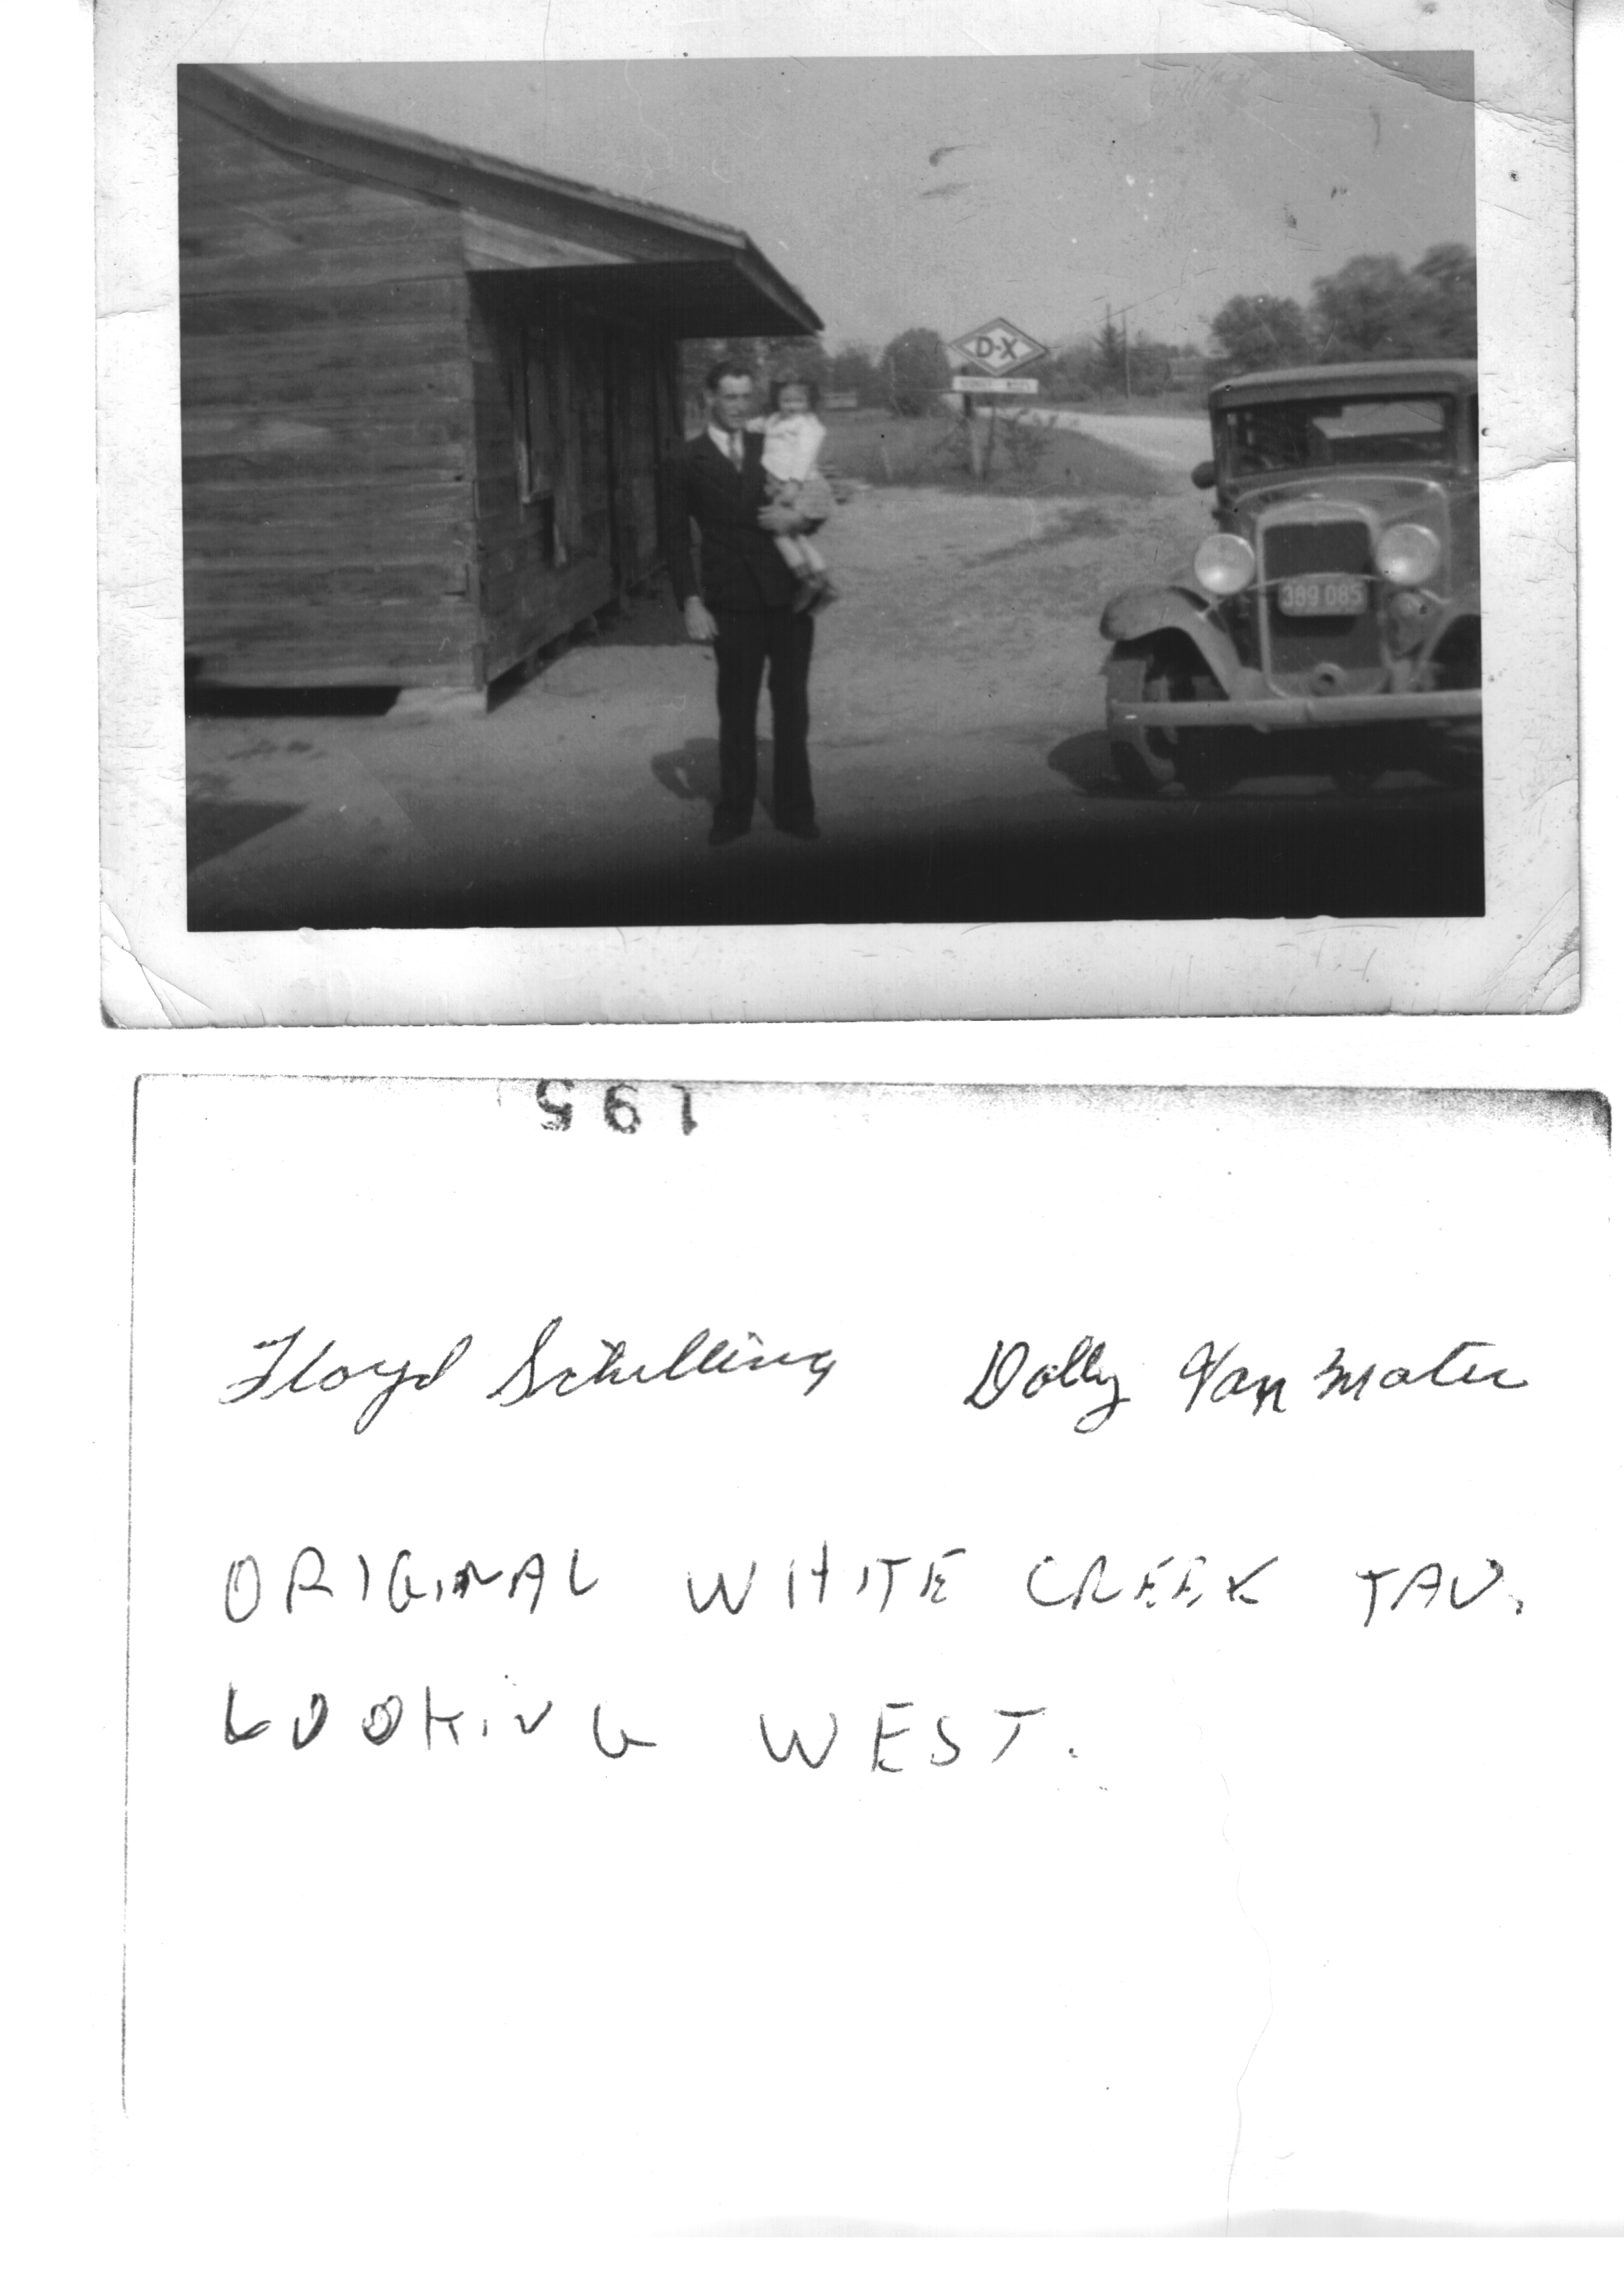 D-X
389 085
195
Floyd Schilling Dolly Van Mater
ORIGINAL WHITE CREEK TAV.
LOOKING WEST.